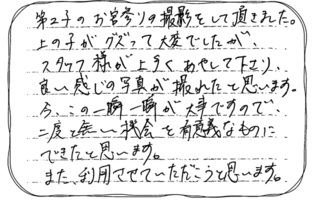 第2子のお宮参りの撮影をして頂きました。
上の子がグズって大変でしたが、
スタッフ様が上手くあやして下さり、
良い感じの写真が撮れたと思います。
今、この一瞬一瞬が大事ですので、
二度と無い機会を有意義なものに
できたと思います。
また、利用させていただこうと思います。